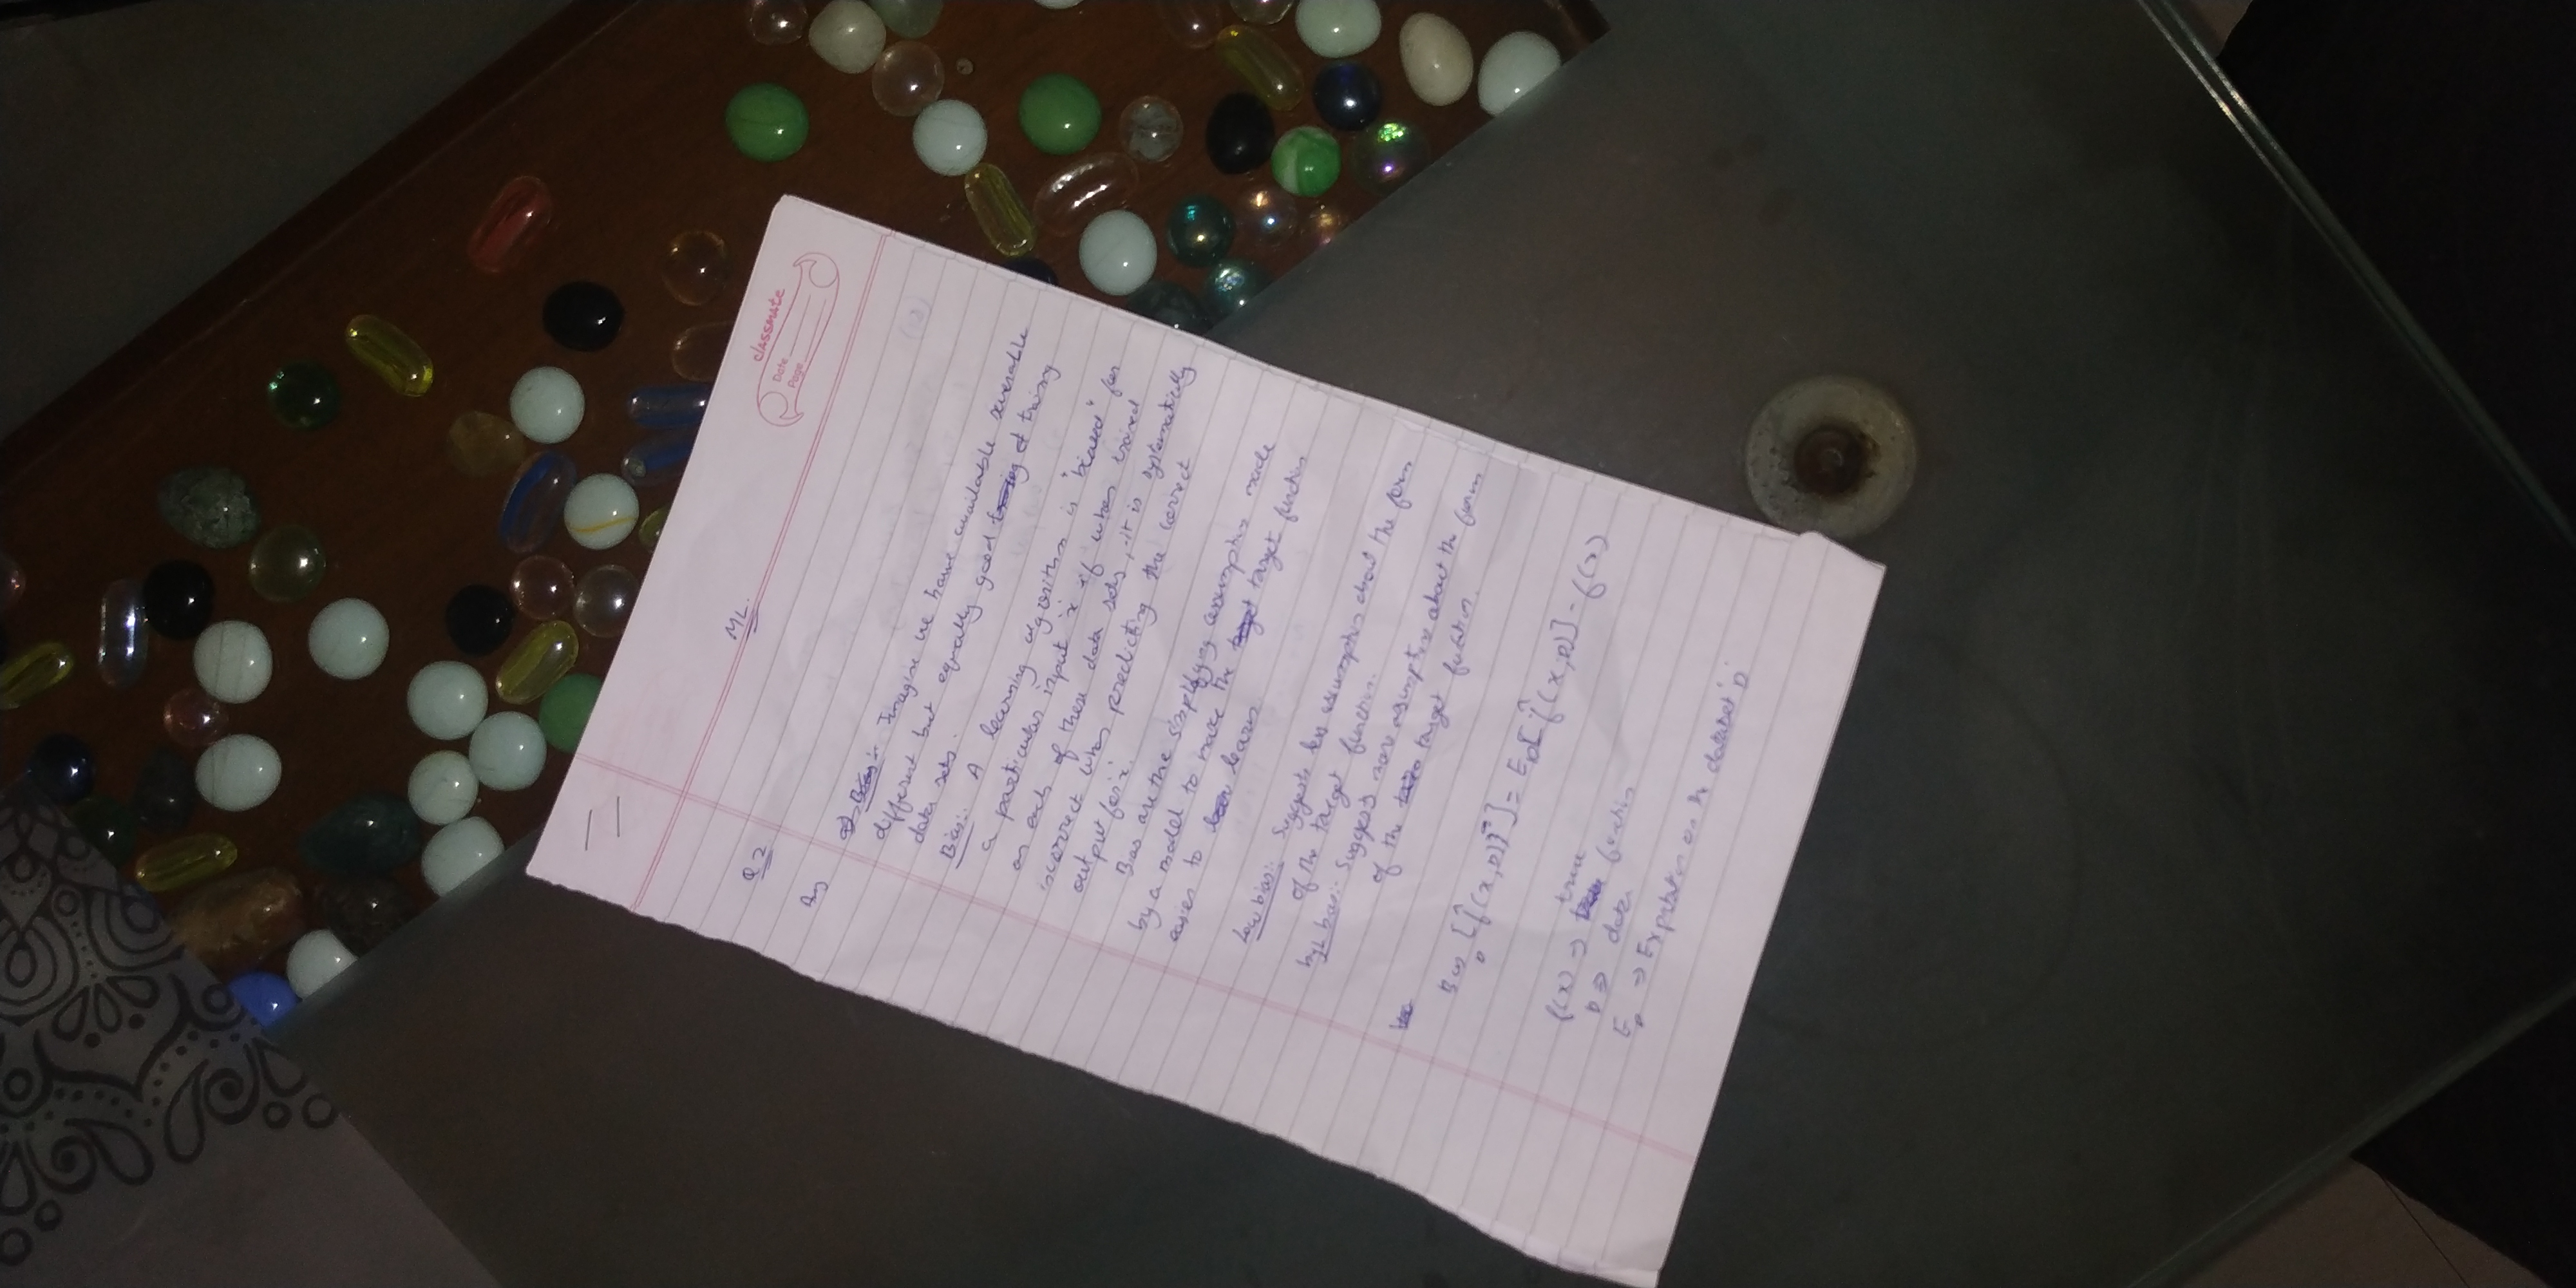 classmate
Date
Page
ML.
Q2
Ans
Imagine we have available severable
different but equally good of training
data sets.
Bias:- A learning algorithm is "biased" for
a particular input x if when trained
on each of these data sets, it is systematically
incorrect when predicting the correct
output for x.
Bias are the simplifying assumptions made
by a model to make the target function
easier to learn
Low bias:- Suggests less assumptions about the form
of the target function.
high bias:- Suggest more assumptions about the form
of the target function.
Bias_D [f̂(x,D)] = E_D[f̂(x,D)] - f(x)
f(x) ⇒ true function
D ⇒ data
E_D ⇒ Expectation on the dataset 'D